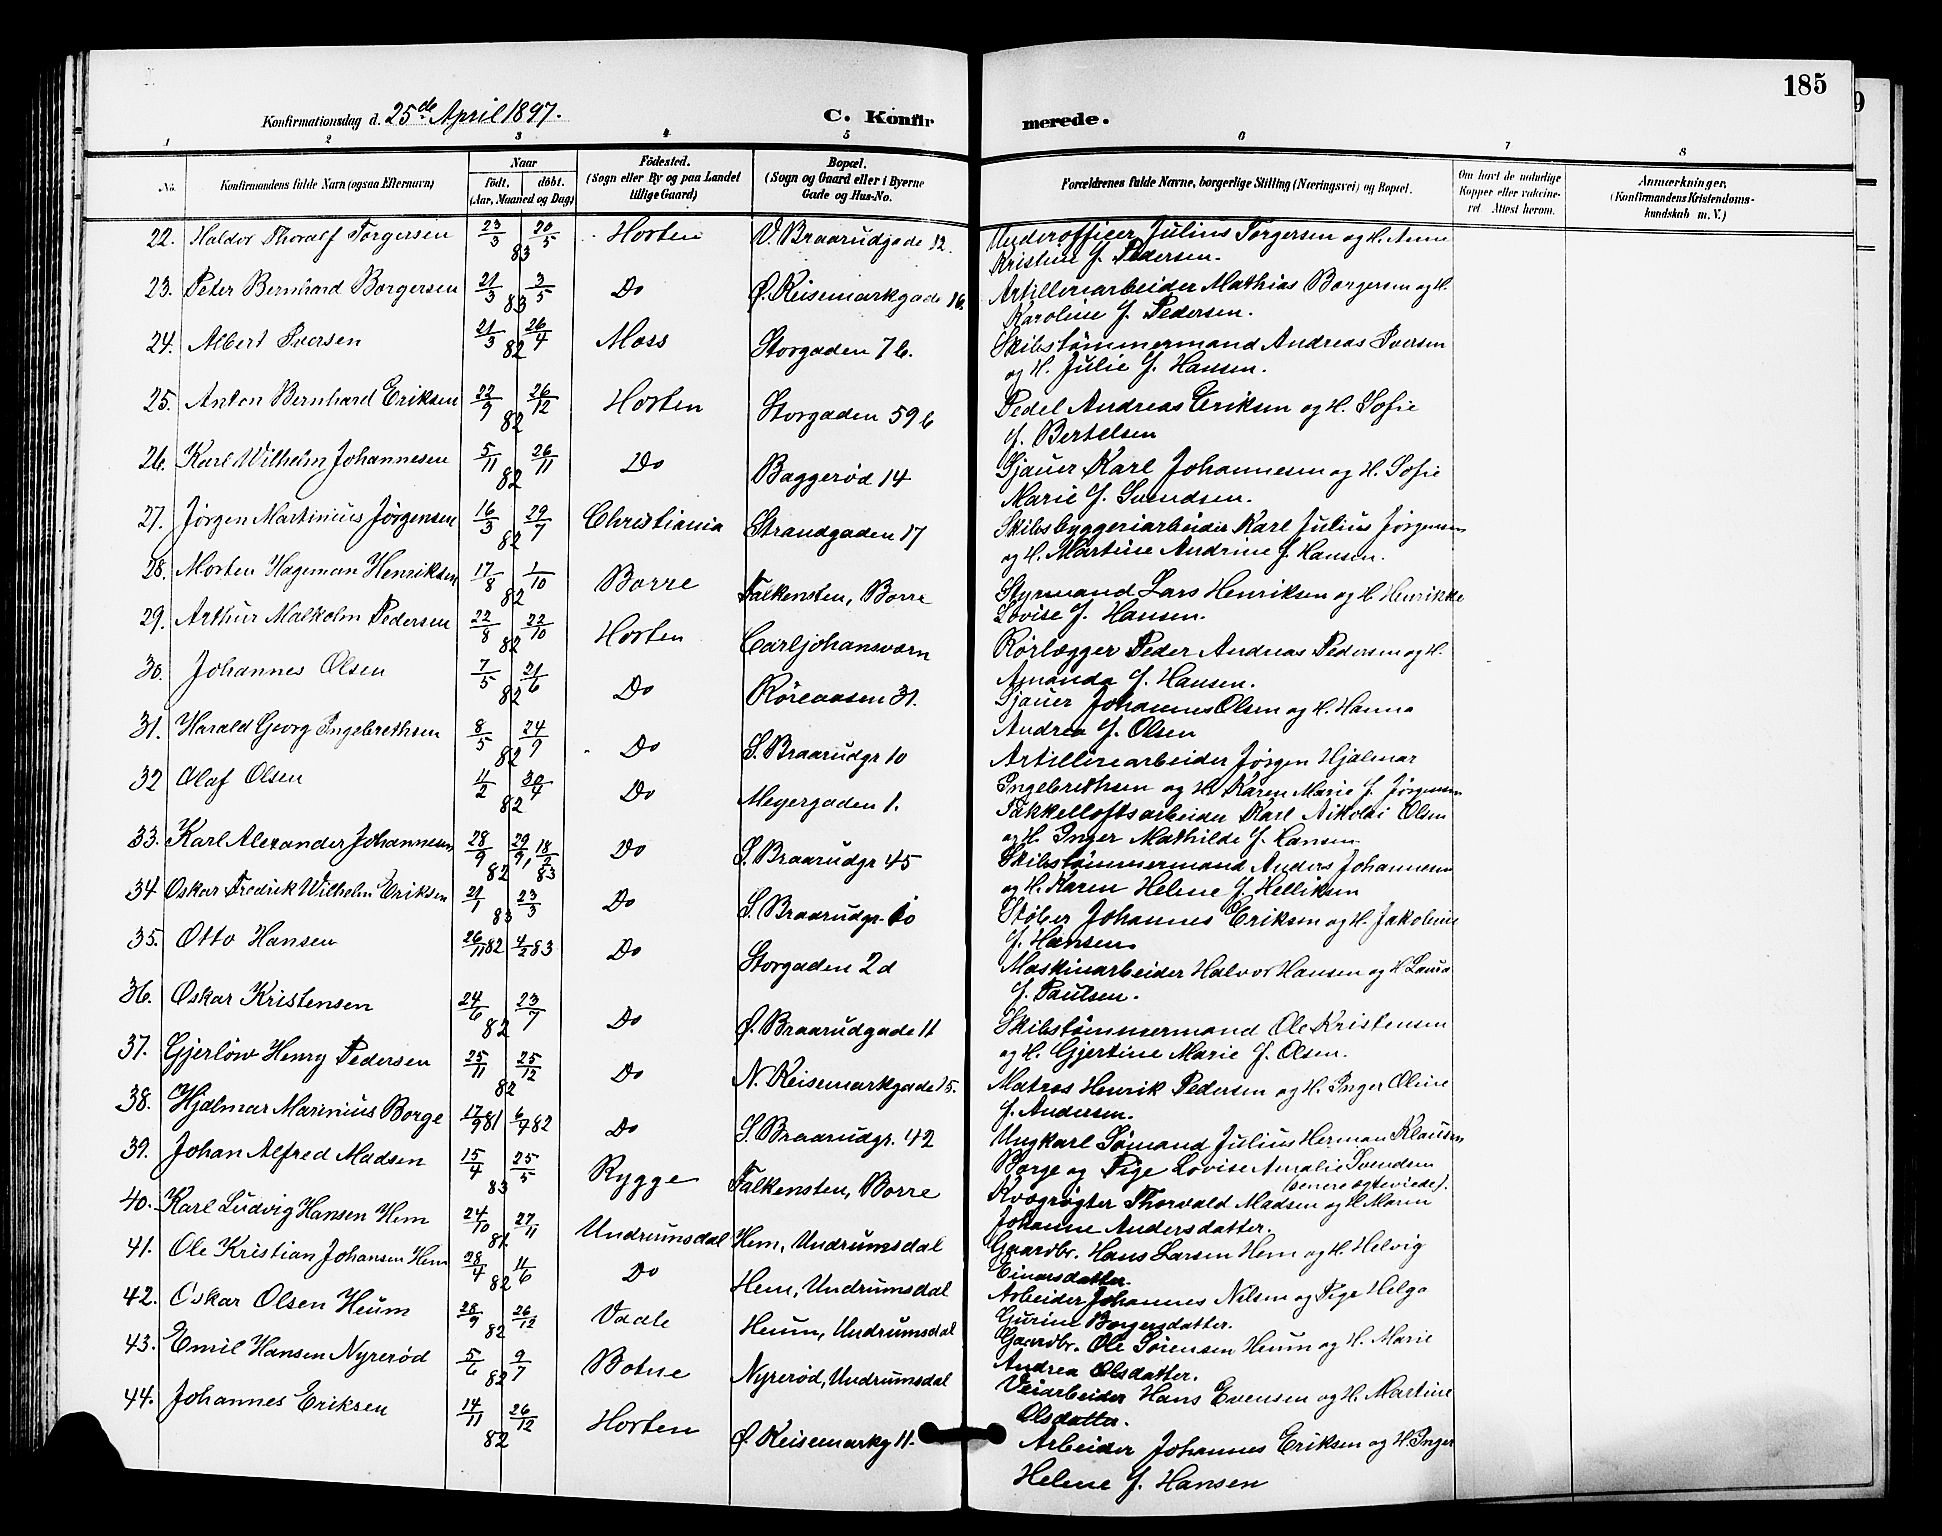 185
Konfirmationsdag d. 25de April 1897.
C. Konfirmerede.
1 2 3 4 5 6 7 8
No.
Konfirmandens fulde Navn (ogsaa Efternavn)
Naar
født, døbt.
(Aar, Maaned og Dag)
Fødested.
(Sogn eller By og paa Landet
tillige Gaard)
Bopæl.
(Sogn og Gaard eller i Byerne
Gade og Hus-No.
Forældrenes fulde Navne, borgerlige Stilling (Næringsvei) og Bopæl.
Om havt de naturlige
Kopper eller vaccine-
ret. Attest herom.
Anmærkninger,
(Konfirmandens Kristendoms-
kundskab m. V.)
22. Haldor Thoralf Torgersen 23/3 20/5 83 Horten V. Braarudgade 12. Underofficer Julius Torgersen og H. Anne
Kristine f. Pedersen.
23. Peter Bernhard Borgersen 21/3 3/5 83 Do Ø. Keisemarkgade 16. Artilleriarbeider Mathias Borgersen og H.
Karoline f. Pedersen.
24. Albert Iversen 21/3 26/4 82 Moss Storgaden 7 b. Skibstømmermand Andreas Iversen
og H. Julie f. Hansen.
25. Anton Bernhard Eriksen 22/9 26/12 82 Horten Storgaden 59 b Pedel Andreas Eriksen og H. Sofie
f. Bertelsen
26. Karl Wilhelm Johannesen 5/11 26/11 82 Do Baggerød 14 Sjauer Karl Johannesen og H. Sofie
Marie f. Svendsen.
27. Jørgen Martinius Jørgensen 16/3 29/7 82 Christiania Strandgaden 17 Skibsbyggeriarbeider Karl Julius Jørgensen
og H. Martine Andrine f. Hansen.
28. Morten Hageman Henriksen 17/8 1/10 82 Borre Falkensten, Borre Styrmand Lars Henriksen og H. Henrikke
Lovise f. Hansen.
29. Arthur Malkolm Pedersen 22/8 22/10 82 Horten Carljohansværn Rørlægger Peder Andreas Pedersen og H.
Amanda f. Hansen.
30. Johannes Olsen 7/5 21/6 82 Do Røreaasen 31. Sjauer Johannes Olsen og H. Hanna
Andrea f. Olsen
31. Harald Georg Ingebrethsen 8/5 24/9 82 Do S. Braarudgr 10 Artilleriarbeider Jørgen Hjalmar
Ingebrethsen og H. Karen Marie f. Jørgensen
32 Olaf Olsen 11/2 30/4 82 Do Meyergaden 1. Takkelloftsarbeider Karl Nikolai Olsen
og H. Inger Mathilde f. Hansen
33. Karl Alexander Johannesen 28/9 82 29/9, 18/2 83 Do S. Braarudgr 45 Skibstømmermand Anders Johannesen
og H. Karen Helene f. Helliksen
34 Oskar Fredrik Wilhelm Eriksen 21/1 23/3 83 Do S. Braarudgr. 60 Støber Johannes Eriksen og H. Jakobine
f. Hansen
35. Otto Hansen 26/11 82 4/2 83 Do Storgaden 2 d Maskinarbeider Halvor Hansen og H Laura
f. Paulsen.
36. Oskar Kristensen 24/6 23/7 82 Do Ø. Braarudgade 11 Skibstømmermand Ole Kristensen
og H. Gjertine Marie f. Olsen.
37. Gjerløw Henry Pedersen 25/11 25/12 82 Do N. Keisemarkgade 15. Matros Henrik Pedersen og H. Inger Oline
f. Andersen.
38. Hjalmar Marinius Borge 17/9 81 6/4 82 Do S. Braarudgr. 42 Ungkarl Sømand Julius Herman Klausen
Borge og Pige Lovise Amalie Svendsen
(senere ægteviede).
39. Johan Alfred Madsen 15/4 25/5 83 Rygge Falkensten, Borre Kvægrøgter Thorvald Madsen og H Maren
Johanne Andersdatter.
40. Karl Ludvig Hansen Hem 24/10 27/11 82 Undrumsdal Hem, Undrumsdal Gaardbr. Hans Larsen Hem og H. Helvig
Einarsdatter.
41. Ole Kristian Johansen Hem 28/4 11/6 82 Do Hem, Undrumsdal Arbeider Johannes Nilsen og Pige Helga
Gurine Borgersdatter.
42. Oskar Olsen Heum 28/9 26/12 82 Vaale Heum, Undrumsdal Gaardbr. Ole Sørensen Heum og H. Marie
Andrea Olsdatter.
43. Emil Hansen Nyrerød 5/6 9/7 82 Botne Nyrerød, Undrumsdal Veiarbeider Hans Evensen og H. Martine
Olsdatter.
44. Johannes Eriksen 14/11 26/12 82 Horten Ø. Keisemarkg 11. Arbeider Johannes Eriksen og H. Inger
Helene f. Hansen